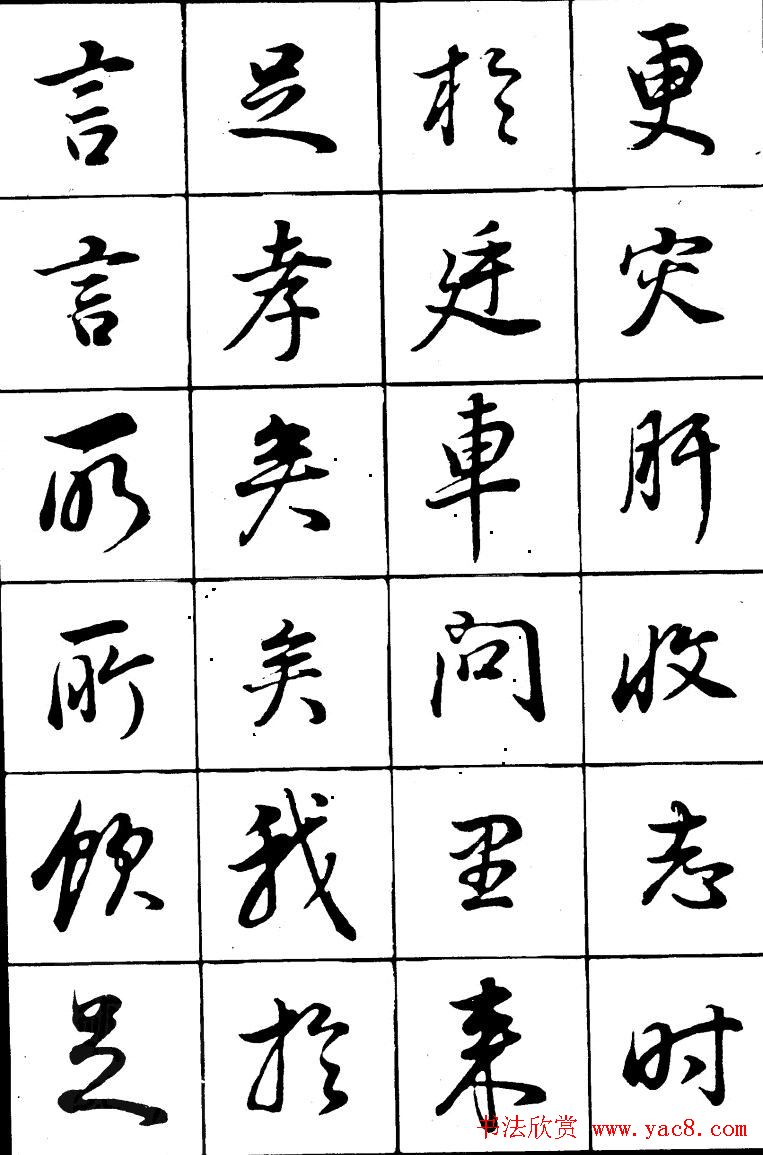 言言所所足
足孝矣矣我於
於廷車問里来
更灾肝收志时
书法欣赏 www.yac8.com